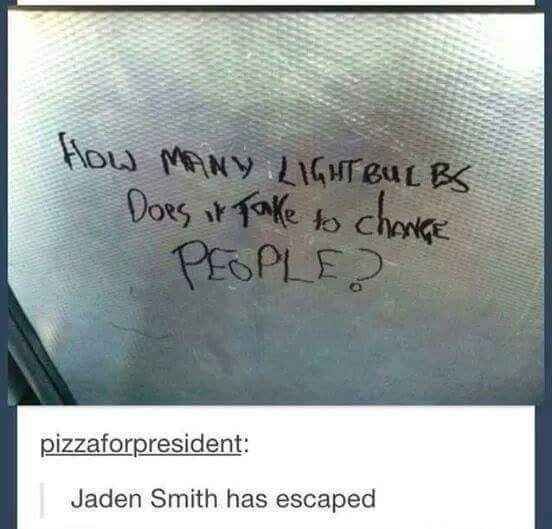 HOW MANY LIGHTBULBS
DOES it TaKe to chANGE
PEOPLE?
pizzaforpresident:
Jaden Smith has escaped